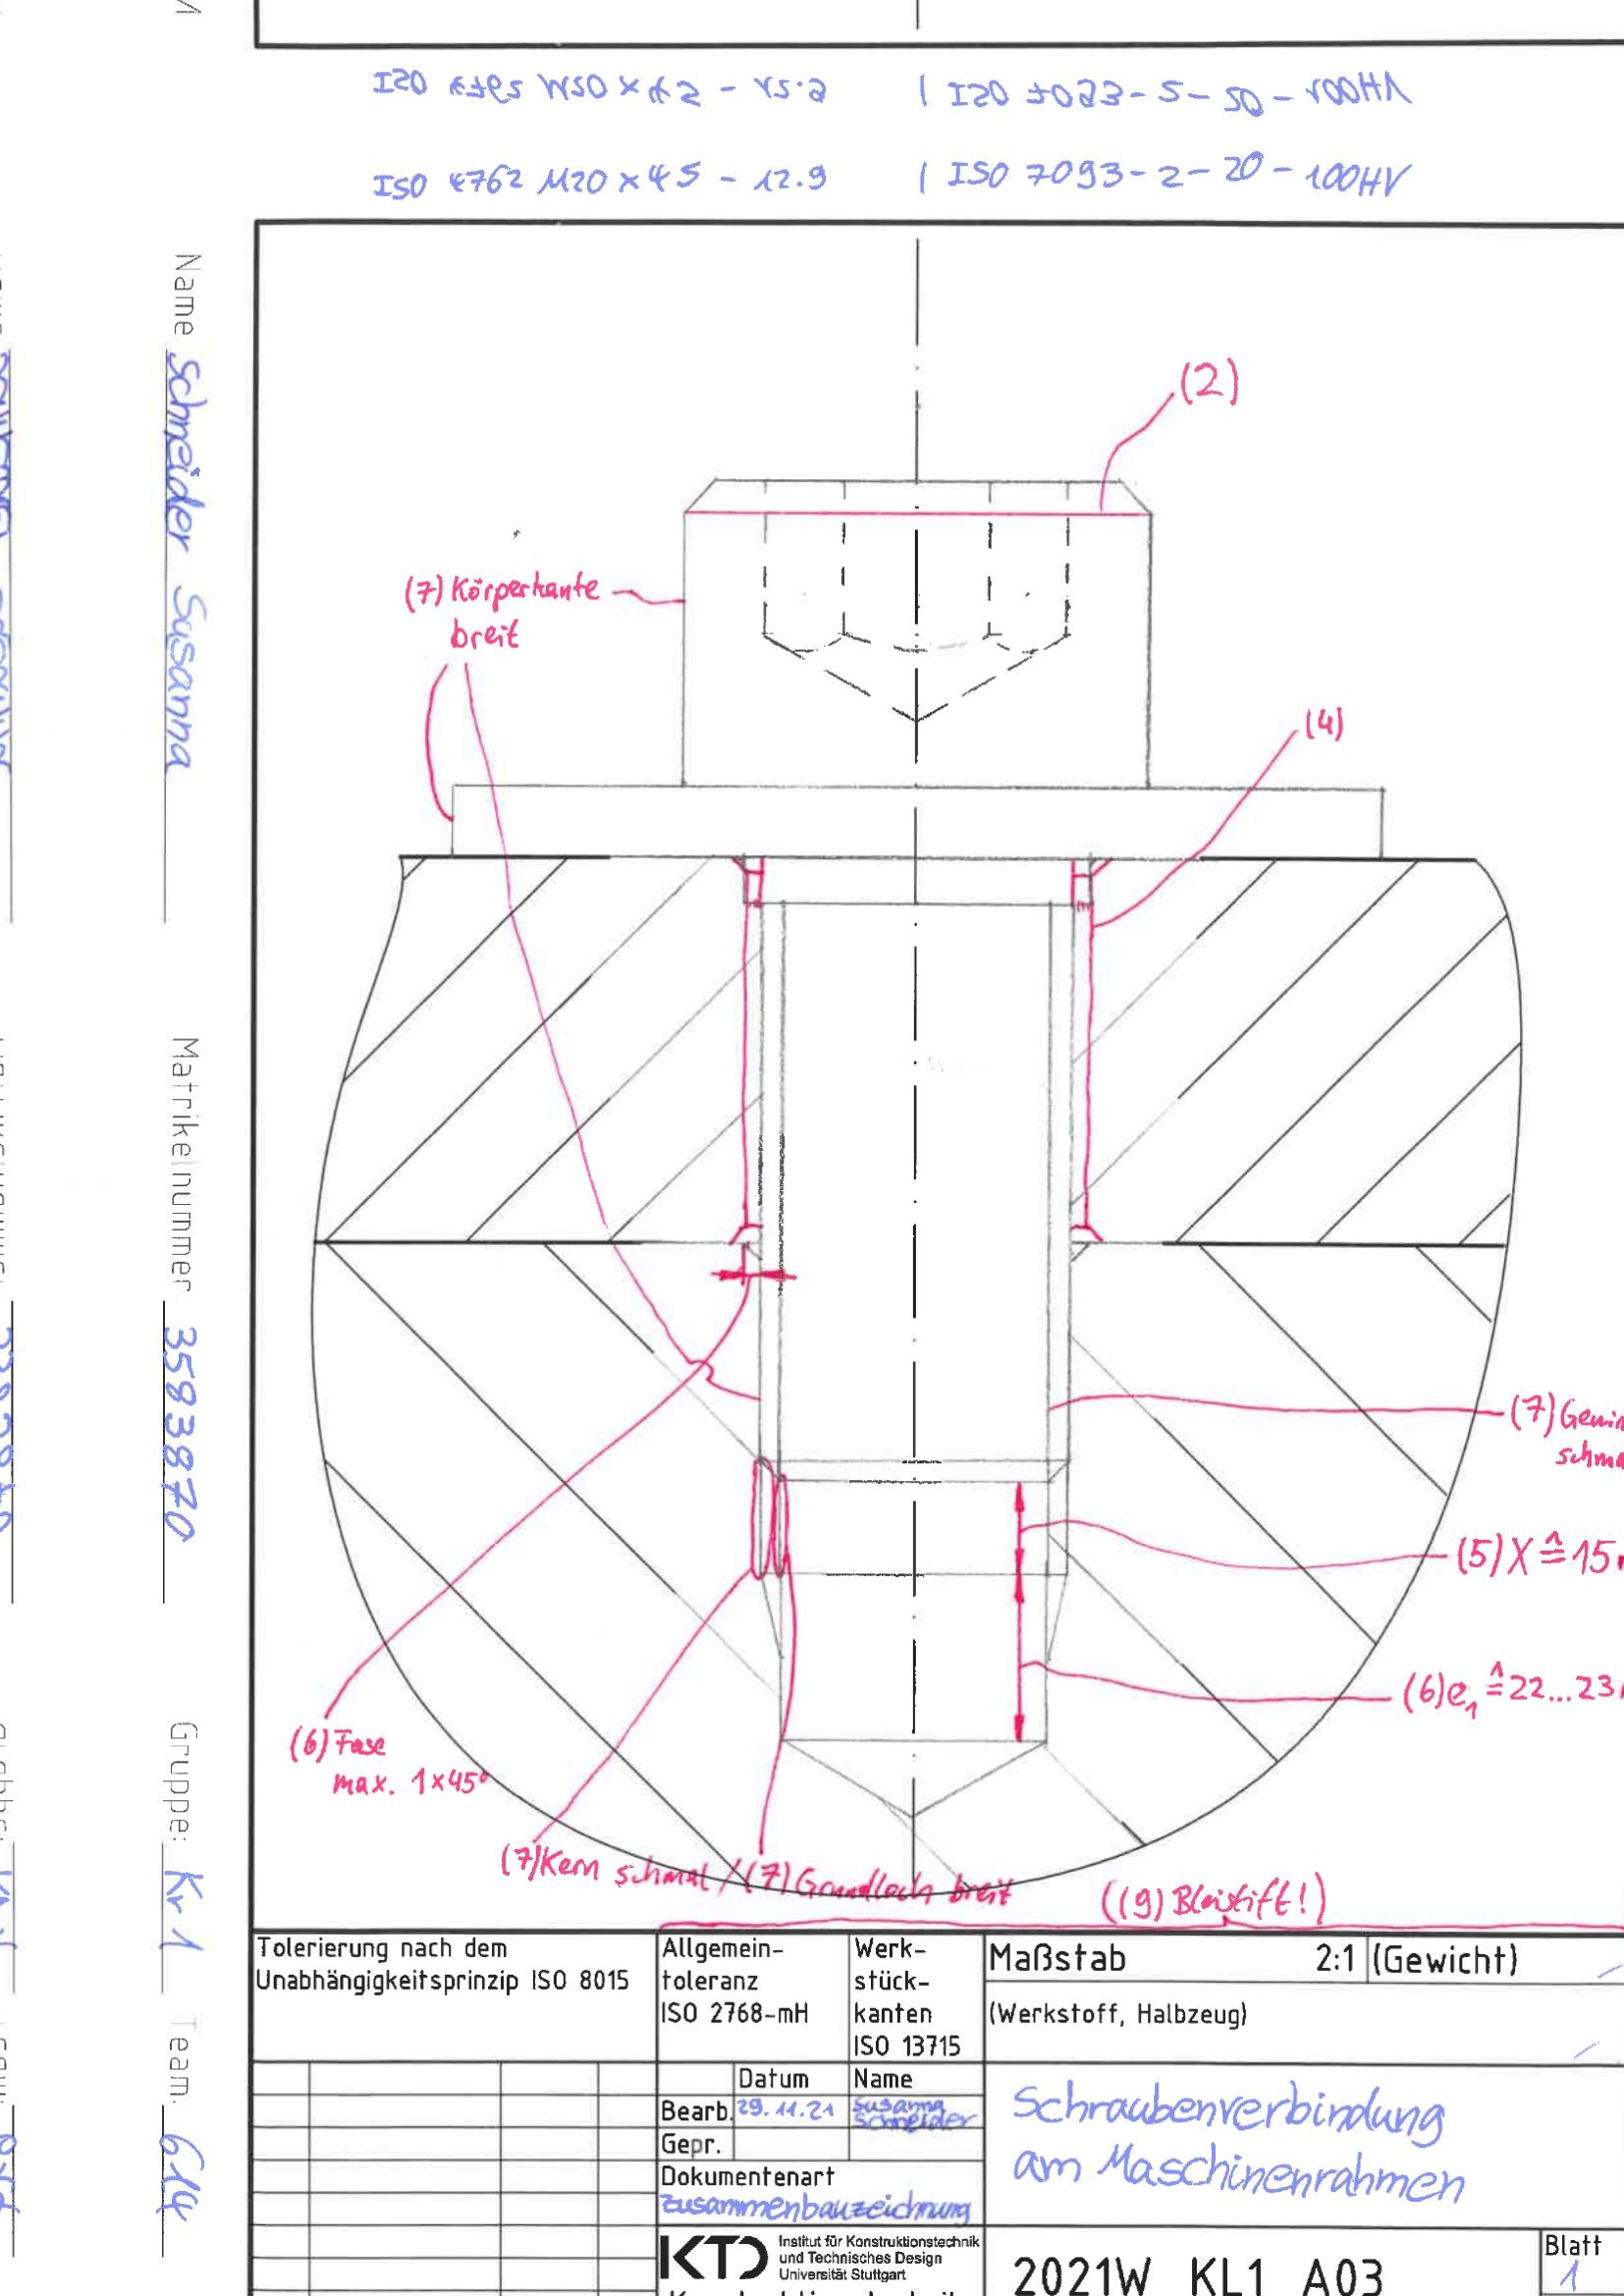 ISO 4762 M20 x 45 - 12.9 | ISO 7093-2-20-100HV
Name Schneider Susanna
Matrikelnummer 3583870
Gruppe: Kr 1 Team.
(2)
(7) Körperkante
breit
(4)
(7)
(5) X ≙ 15
(6) e₁ ≙ 22...23
(6) Fase
max. 1x45°
(7) Kern schmal / (7) Grundloch breit
((9) Bleistift!)
Tolerierung nach dem
Unabhängigkeitsprinzip ISO 8015
Allgemein-
toleranz
ISO 2768-mH
Werk-
stück-
kanten
ISO 13715
Maßstab 2:1 (Gewicht)
(Werkstoff, Halbzeug)
Datum Name
Bearb. 29.11.21 Susanna
Schneider
Gepr.
Dokumentenart
Zusammenbauzeichnung
Schraubenverbindung
am Maschinenrahmen
KTD
Institut für Konstruktionstechnik
und Technisches Design
Universität Stuttgart
2021W KL1 A03
Blatt
1